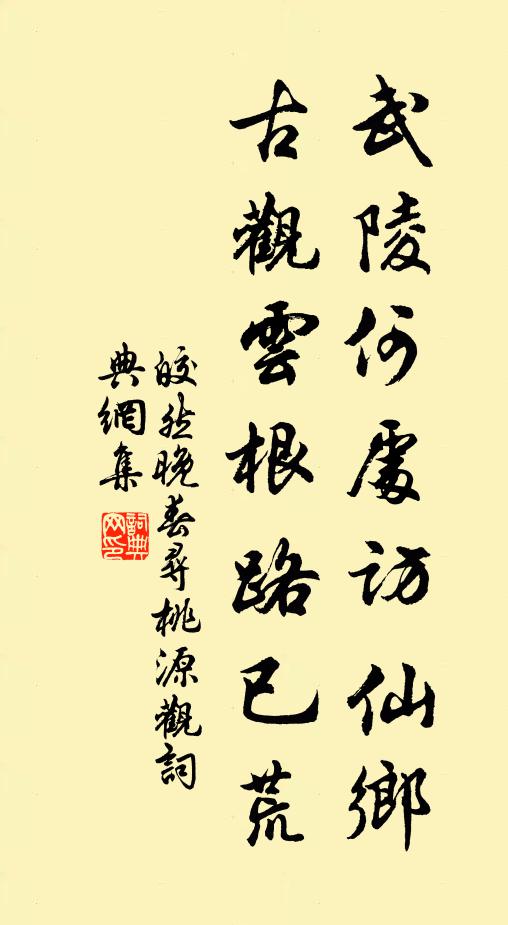 武陵何處訪仙鄉
古觀雲根路已荒
皎然晚春尋桃源觀詞
典網集
詞典網印